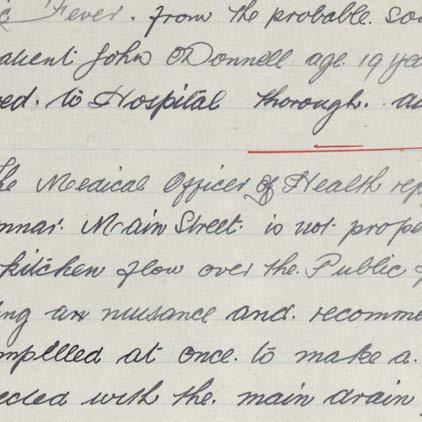 Fever. from the probable so
atient John O'Donnell age. 19 yea
ed. to Hospital thorough. a
he Medical Officer of Health rep
nnar. Main Street. is not prope
kitchen flow over the. Public
ng an nuisance and. recomme
mpllled at once. to make a.
ected with the. main drain